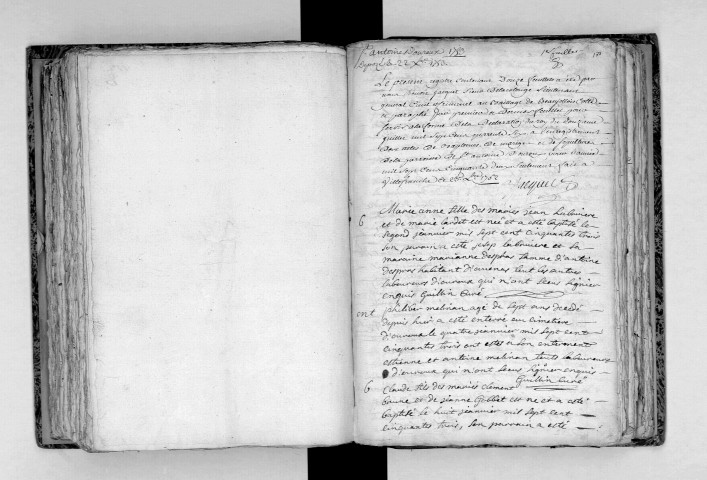 St antoine Douroux 1753
22 Xbre 1752
1er feuillet
Le present registre contenant Douze feuillets
nous
general Civil et criminel au Bailliage de Beaujollois
et paraphé par premier et dernier feuillet pour
servir a la forme de la Declaration du roy du
juillet mil sept cent quarente
des actes de Baptemes de mariage et de sepulture
de la paroisse de St antoine D'ouroux
mil sept cent cinquante trois fait a
Villefranche le 22 Xbre 1752
6 Marie anne fille des mariés jean labruiere
et de marie lardet est née et a esté baptisée le
segond jeanvier mil sept cent cinquantes trois
son parrain a esté josep labruiere et sa
maraine marianne despras femme d'antoine
despras habitant d'avenas tout les autres
laboureurs d'ouroux qui n'ont sceus signier
enquis Guillin Curé
ent philiber melinan agé de sept ans decedé
depuis hier a esté enterré au cimetiere
d'ouroux le quatre jeanvier mil sept cent
cinquantes trois ont estes a son enterement
estienne et antoine melinan touts laboureurs
d'ouroux qui n'ont sceus signier enquis
Guillin Curé
6 Claude fils des mariés clement
brune et de jeanne Gobbet est né et a esté
baptisé le huit jeanvier mil sept cent
cinquantes trois, son parrain a esté